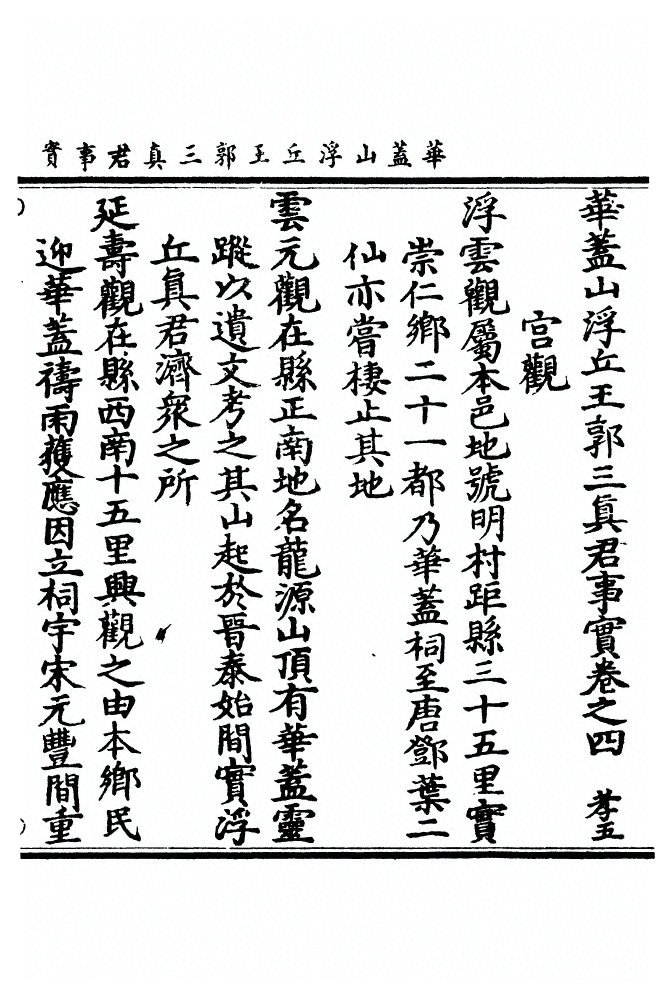 華蓋山浮丘王郭三真君事實
華蓋山浮丘王郭三眞君事實卷之四 孝五
宮觀
浮雲觀屬本邑地號明村距縣三十五里實
崇仁鄉二十一都乃華蓋祠至唐鄧葉二
仙亦嘗棲止其地
雲元觀在縣正南地名龍源山頂有華蓋靈
蹤以遺文考之其山起於晉泰始間實浮
丘眞君濟衆之所
延壽觀在縣西南十五里興觀之由本鄉民
迎華蓋禱雨獲應因立祠宇宋元豐間重